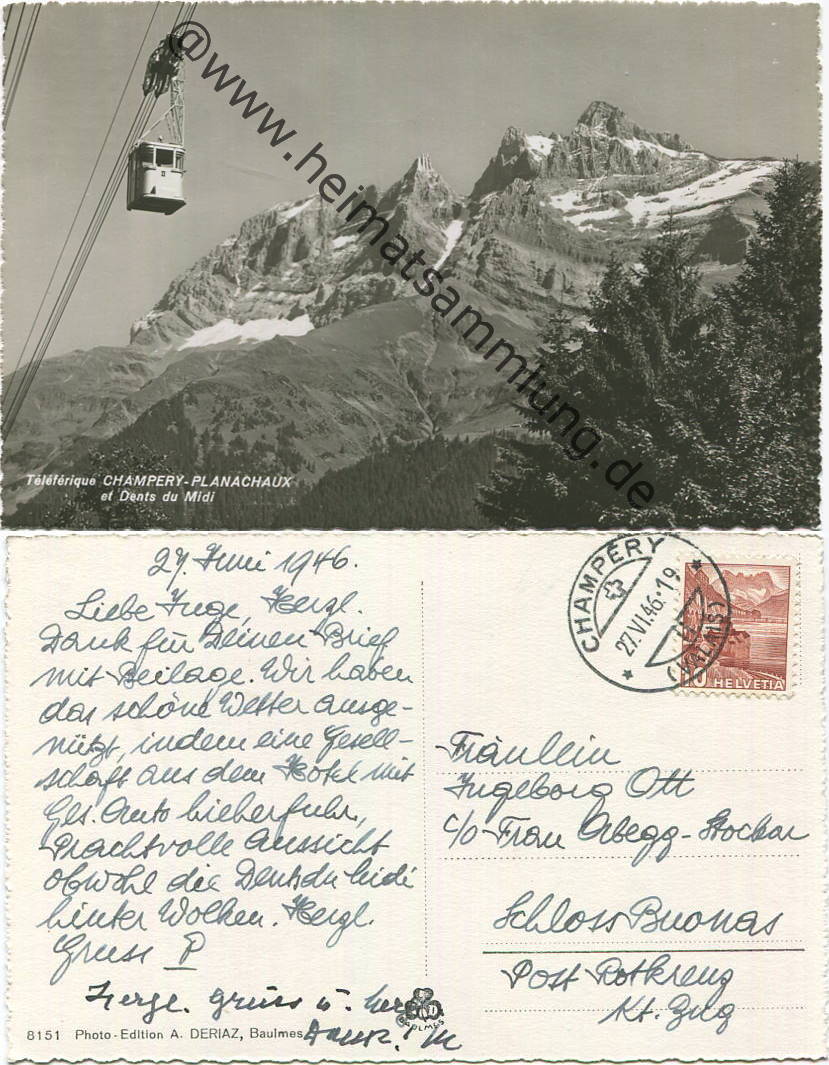 @www.heimatsammlung.de
Téléférique CHAMPERY-PLANACHAUX
et Dents du Midi
27. Juni 1946.
Liebe Inge, Herzl.
Dank für Deinen Brief
mit Beilage. Wir haben
das schöne Wetter ausge-
nützt, indem eine Gesell-
schaft aus dem Hotel mit
Ges. Auto hieherfuhr,
Prachtvolle Aussicht
obwohl die Dents du Midi
hinter Wolken. Herzl.
Gruss P
Herzl. Gruss u. herzl.
Dank! M
8151 Photo-Edition A. DERIAZ, Baulmes
BAULMES
CHAMPÉRY
27.VI.46.19
(VALAIS)
10 HELVETIA
Fräulein
Ingeborg Ott
c/o Frau Abegg-Stockar
Schloss Buonas
Post Rotkreuz
Kt. Zug